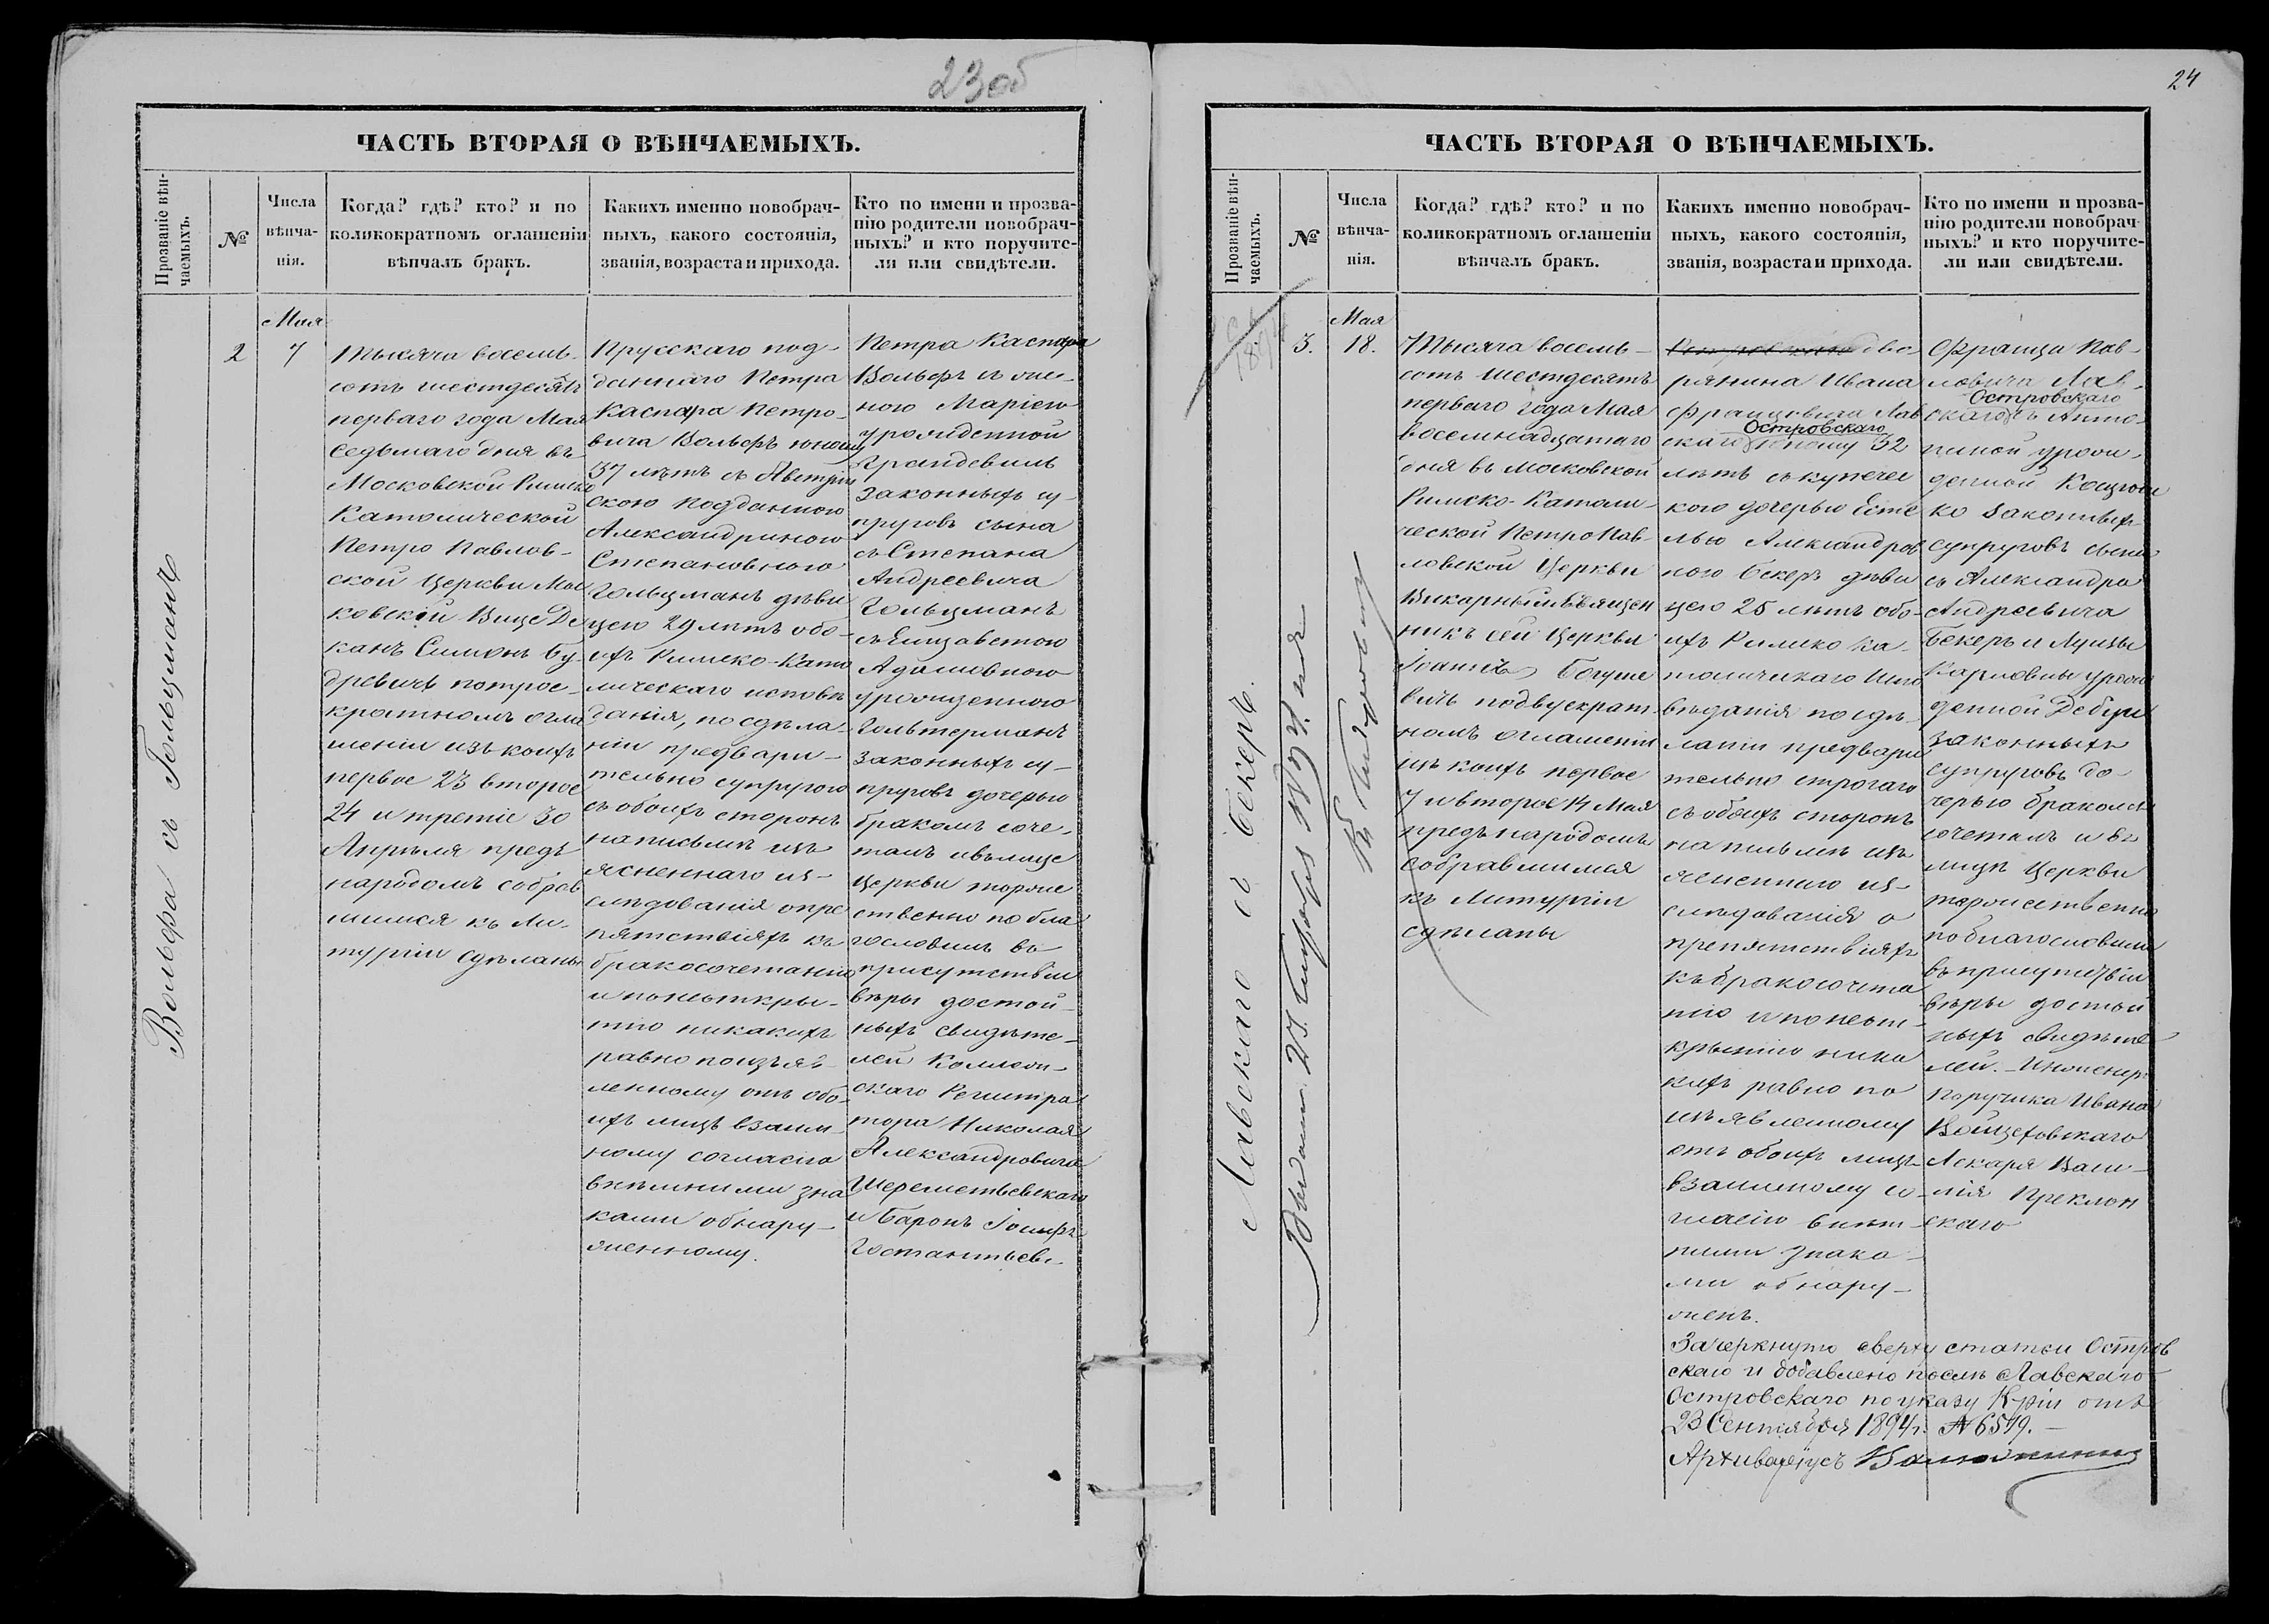 23 об
ЧАСТЬ ВТОРАЯ О ВѢНЧАЕМЫХЪ.
Прозваніе вѣн-
чаемыхъ.
№
Числа
вѣнча-
нія.
Когда? гдѣ? кто? и по
коликократномъ оглашеніи
вѣнчалъ бракъ.
Какихъ именно новобрач-
ныхъ, какого состоянія,
званія, возраста и прихода.
Кто по имени и прозва-
нію родители новобрач-
ныхъ? и кто поручите-
ли или свидѣтели.
Вольфа съ Гольцманъ
2
Мая
7
Тысяча восемь-
сотъ шестдесятъ
перваго года Мая
седьмаго дня въ
Московской Римско
Католической
Петро Павлов-
ской Церкви Мос
ковскій Вице Де
канъ Симонъ Бу-
древичъ по трое-
кратномъ огла
шеніи изъ коихъ
первое 23 второе
24 и третіе 30
Апрѣля предъ
народомъ собрав
шимся къ Ли-
тургіи сдѣланы
Прусскаго под-
даннаго Петра
Каспара Петро-
вича Вольфъ юношу
37 лѣтъ съ Австрій
скою подданною
Александриною
Степановною
Гольцманъ дѣви
цею 29 лѣтъ обо-
ихъ Римско-Като
лическаго исповѣ
данія, по сдѣла-
ніи предвари-
тельно супругою
съ обоихъ сторонъ
на письмѣ изъ
ясненнаго из-
слѣдованія о пре
пятствіяхъ къ
бракосочетанію
и по неоткры-
тію никакихъ
равно по изъяв-
ленному отъ обо-
ихъ лицъ взаим-
ному согласію
внѣшними зна
ками обнару-
женному.
Петра Каспара
Вольфъ и же-
ною Маріею
урожденной
Грандевиль
законныхъ су-
пруговъ сына
съ Степана
Андреевича
Гольцманъ
съ Елизаветою
Адамовною
урожденною
Гольтерманъ
законныхъ су-
пруговъ дочерью
бракомъ соче-
талъ и въ лице
Церкви торже
ственно побла
гословилъ въ
присутствіи
вѣры достой-
ныхъ свидѣте-
лей Коллеж-
скаго Регистра
тора Николая
Александровича
Шереметьевскаго
и Баронъ Іосифъ
24
ЧАСТЬ ВТОРАЯ О ВѢНЧАЕМЫХЪ.
Прозваніе вѣн-
чаемыхъ.
№
Числа
вѣнча-
нія.
Когда? гдѣ? кто? и по
коликократномъ оглашеніи
вѣнчалъ бракъ.
Какихъ именно новобрач-
ныхъ, какого состоянія,
званія, возраста и прихода.
Кто по имени и прозва-
нію родители новобрач-
ныхъ? и кто поручите-
ли или свидѣтели.
Лавскаго съ Бекеръ.
3.
Мая
18.
Тысяча восемь-
сотъ шестдесятъ
перваго года Мая
восемнадцатаго
дня въ Московской
Римско-Католи-
ческой Петро Пав-
ловской Церкви
Викарный Священ
никъ сей Церкви
Іоаннъ Богуше
вичъ по двукрат-
номъ оглашеніи
изъ коихъ первое
7 и второе 14 Мая
предъ народомъ
собравшимся
къ Литургіи
сдѣланы
дво-
рянина Ивана
Францовича Лав
Островскаго
скаго юношу 32
лѣтъ съ купечес
кою дочерью Эмі
лью Александров
ною Бекеръ дѣви
цею 25 лѣтъ обо-
ихъ Римско Ка-
толическаго Испо
вѣданія по сдѣ-
лати предвари
тельно строгаго
съ обоихъ сторонъ
на письмѣ изъ
ясненнаго из-
слѣдованія о
препятствіяхъ
къ бракосочета
нію и по неот-
крытію ника
кихъ равно по
изъявленному
отъ обоихъ лицъ
взаимному со-
гласію внѣш-
ними знака-
ми обнару-
женъ.
Франца Пав-
ловича Лав-
Островскаго
скаго съ Анто-
ниной урож-
денной
ко законныхъ
супруговъ сына
съ Александра
Андреевича
Бекеръ и Луизы
Карловны урож
денной
законныхъ
супруговъ до-
черью бракомъ
сочеталъ и въ
лицѣ Церкви
торжественно
поблагословилъ
въ присутствіи
вѣры достой
ныхъ свидѣте
лей. Инженер
Поручика Ивана
Войцеховскаго
Лекаря Васи-
лія Преклон
скаго
Зачеркнуто сверху статьи Островскаго
скаго и добавлено послѣ Лавскаго
Островскаго по указу К-ріи отъ
23 Сентября 1894 г. № 6519.-
Архиваріусъ